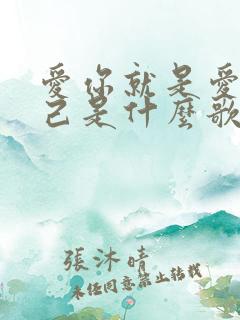 愛你就是愛
己是什麼歌
張沐晴
未經同意禁止轉載